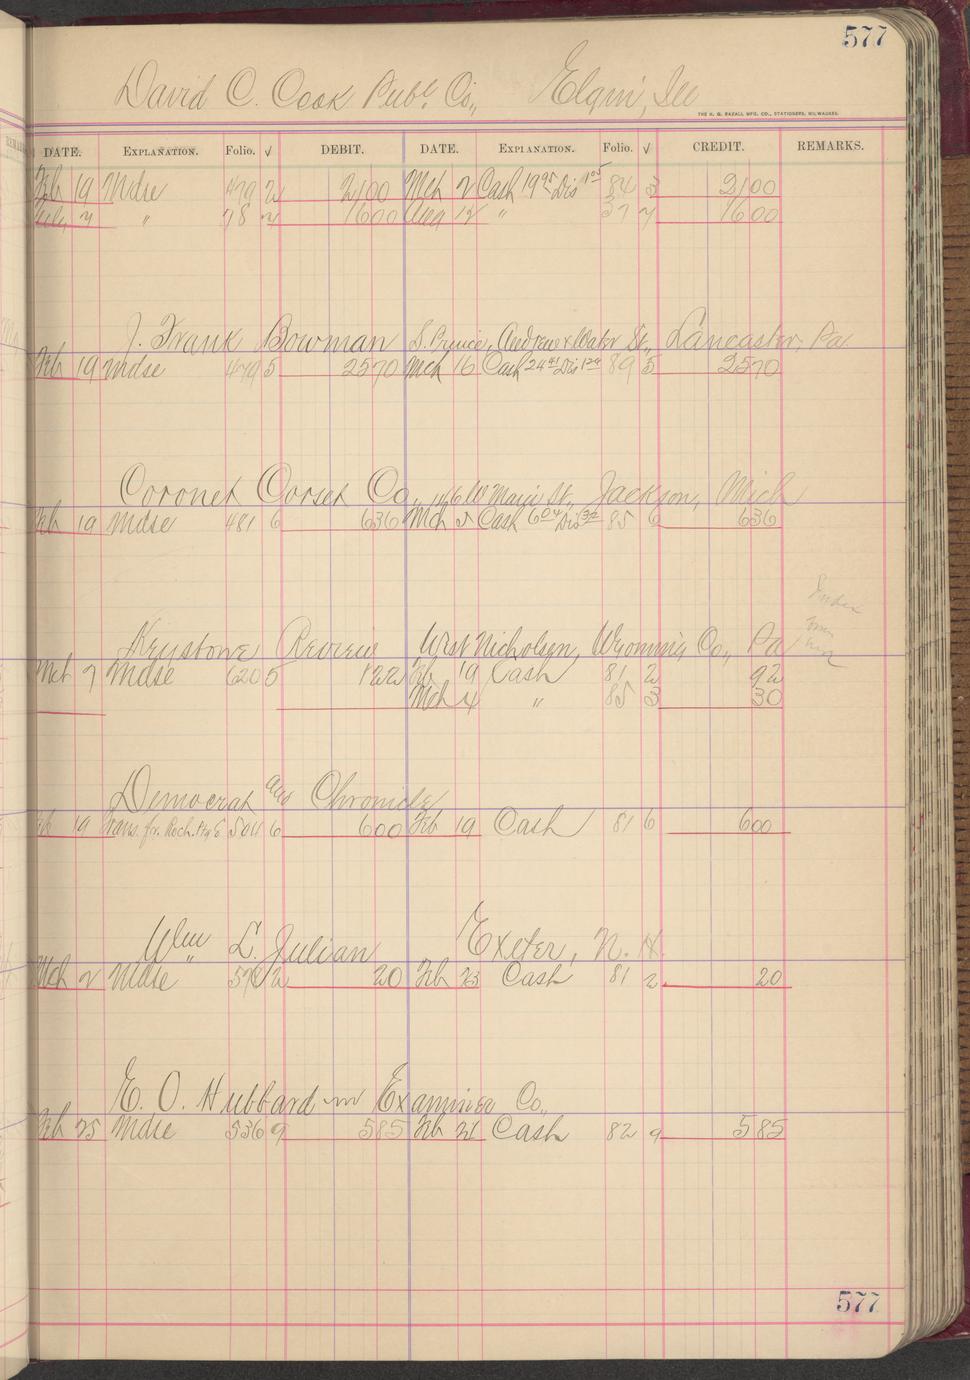 577
David C. Cook Publ. Co., Elgin, Ill
THE H. G. RAZALL MFG. CO., STATIONERS, MILWAUKEE.
DATE. EXPLANATION. Folio. √ DEBIT. DATE. EXPLANATION. Folio. √ CREDIT. REMARKS.
Feb 19 Mdse 479 2 2100 Mch 2 Cash 19 95 Dis 1 05 84 3 2100
July 7 " 78 2 1600 Aug 12 " 37 7 1600
J. Frank Bowman S. Prince, Andrew & Water St., Lancaster, Pa
Feb 19 Mdse 479 5 2570 Mch 16 Cash 24 41 Dis 1 29 89 5 2570
Coronet Corset Co., 116 W Main St., Jackson, Mich
Feb 19 Mdse 481 6 636 Mch 5 Cash 6 04 Dis 32 85 6 636
Keystone Review West Nicholson, Wyoming Co., Pa
Mch 7 Mdse 620 5 122 Feb 19 Cash 81 2 92
Mch 4 " 85 3 30
Democrat and Chronicle
Feb 19 Trans. fr. Roch. 504 6 600 Feb 19 Cash 81 6 600
Wm L. Julian Exeter, N. H.
Mch 2 Mdse 578 2 20 Feb 23 Cash 81 2 20
E. O. Hubbard Examiner Co.,
Feb 25 Mdse 536 9 585 Feb 21 Cash 82 9 585
577